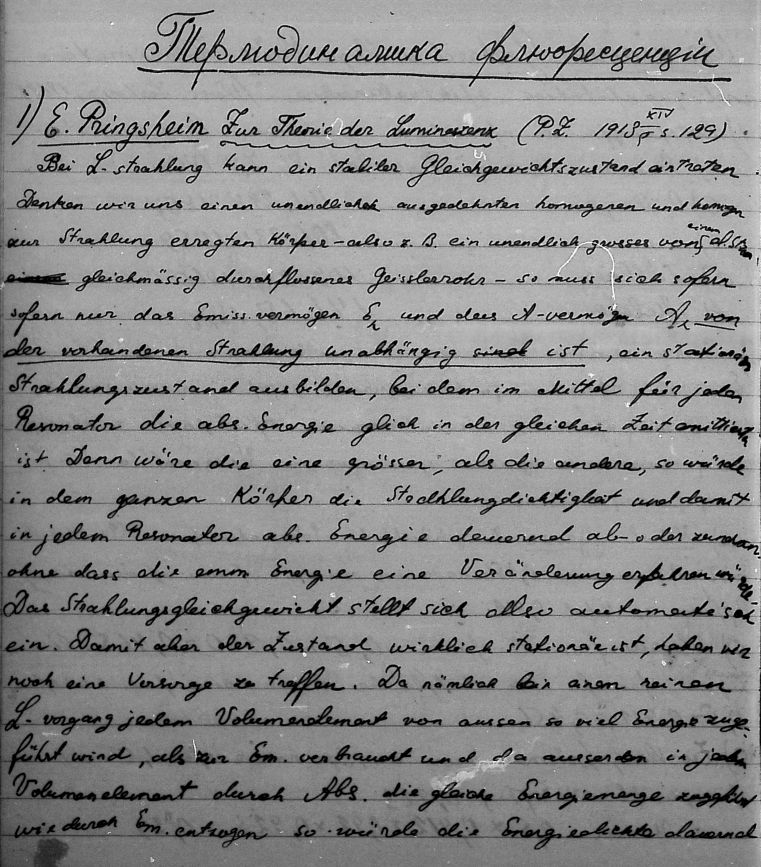 Термодинамика флюоресценціи
1) E. Pringsheim Zur Theorie der Lumineszenz (P.Z. 1913 XIV s. 129)
Bei L-strahlung kann ein stabiler Gleichgewichtszustand eintreten.
Denken wir uns einen unendlich ausgedehnten homogenen und homogen
zur Strahlung erregten Körper – also z. B. ein unendlich grosses von einem
gleichmässig durchflossenes Geisslerrohr – so muss sich sofern
sofern nur das Emiss. vermögen E und das A-vermögen A von
der vorhandenen Strahlung unabhängig ist, ein stationär
Strahlungszustand ausbilden, bei dem im Mittel für jeden
Resonator die abs. Energie glich in der gleichen Zeit emittier
ist Denn wäre die eine grösser, als die andere, so würde
in dem ganzen Körper die Stedhlungdichtigkeit und damit
in jedem Resonator abs. Energie dauernd ab- oder
ohne dass die emm Energie eine Veränderung erfahren würde.
Das Strahlungsgleichgewicht stellt sich allso automatisch
ein. Damit aber der Zustand wirklich stationär ist, haben wir
noch eine Vorsorge zu treffen. Da nämlich bei einem reinen
L-vorgang jedem Volumenelement von aussen so viel Energie zuge-
führt wird, als zur Em. verbraucht und da ausserdem in jedem
Volumenelement durch Abs. die gleiche Energiemenge
wie durch Em. entzogen so würde die Energiedichte dauernd